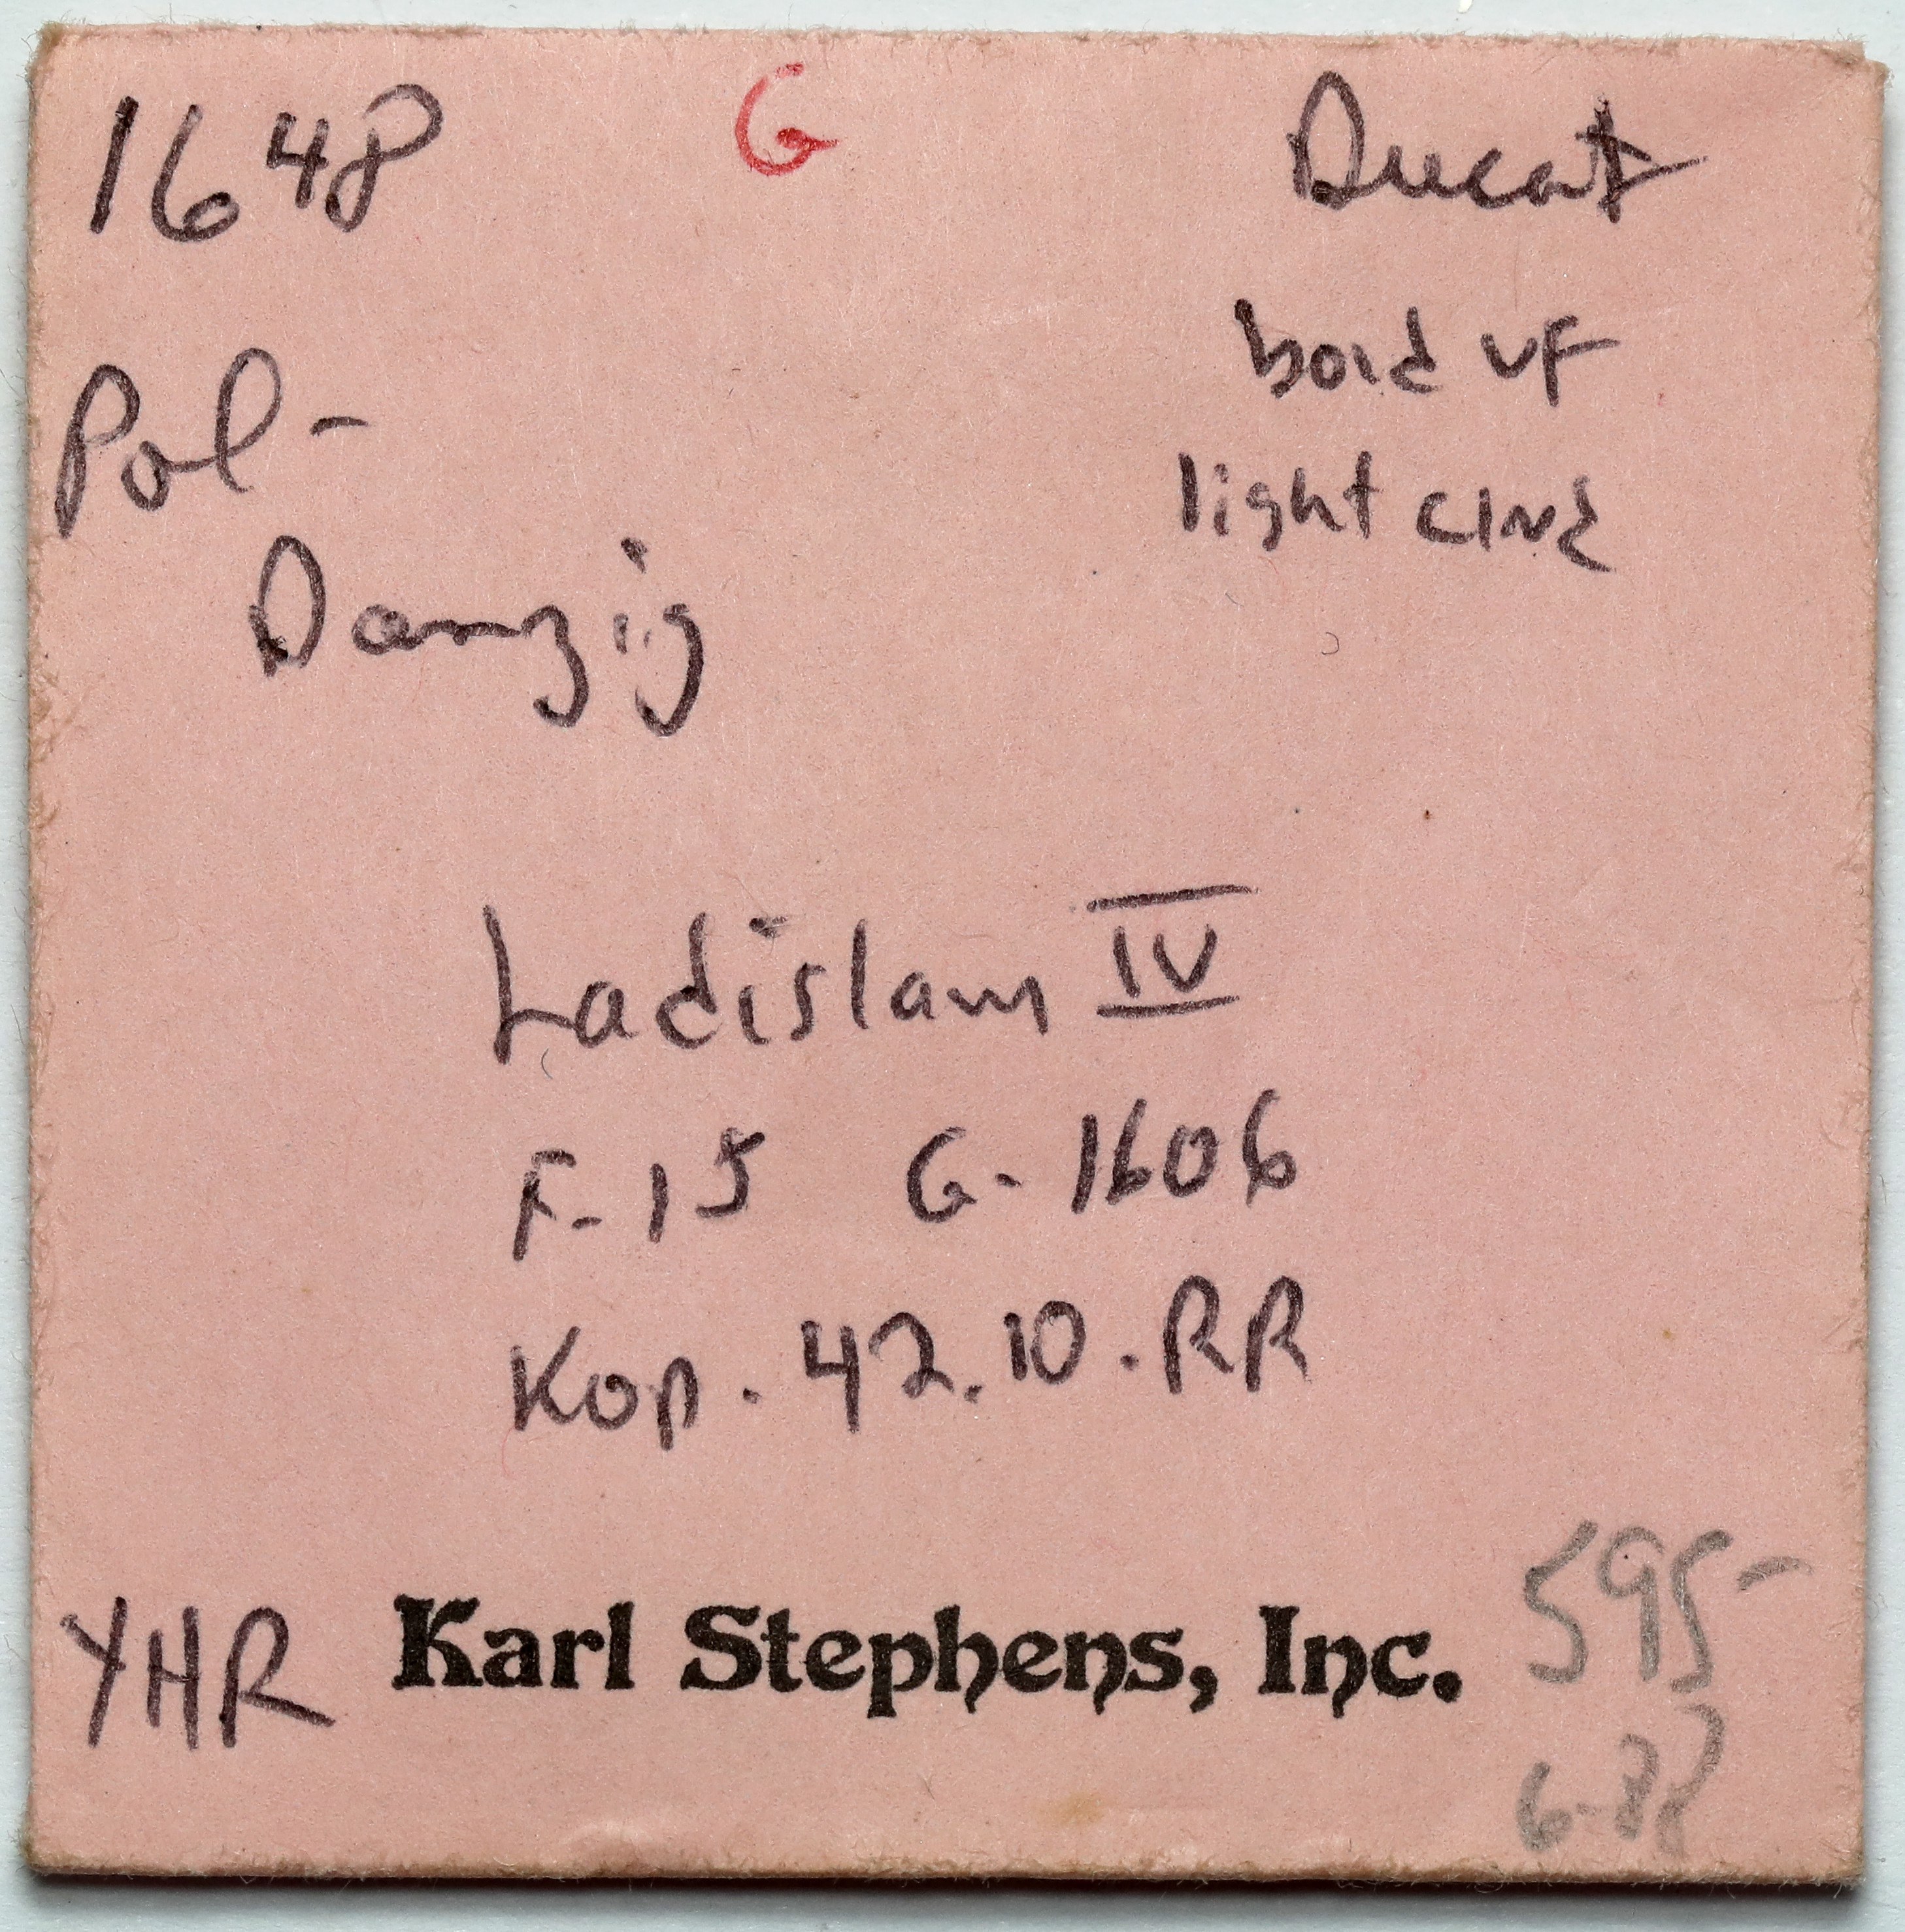 1648 G Ducat
bold VF
Pol-
light clnd
Danzig
Ladislaus IV
F-15 G-1606
Kop. 42.10.RR
595-
YHR Karl Stephens, Inc.
6-88